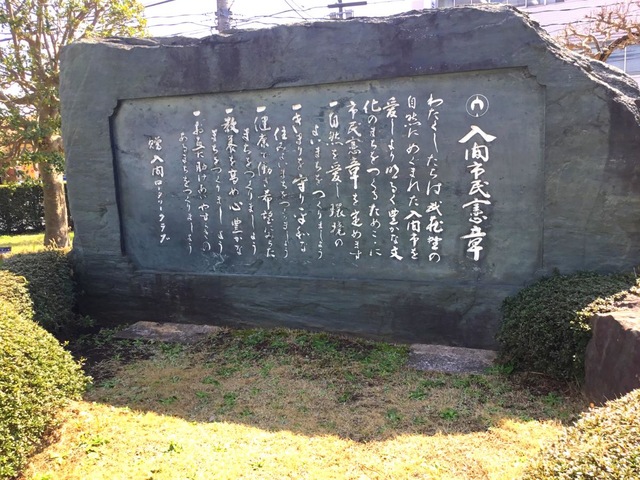 入間市民憲章
わたくしたちは武蔵野の
自然にめぐまれた入間市を
愛しより明るく豊かな文
化のまちをつくるためここに
市民憲章を定めます
一自然を愛し環境の
よいまちをつくりましょう
一きまりを守りさわやかな
住みよいまちをつくりましょう
一健康で働き希望にみちた
まちをつくりましょう
一教養を高め心豊かな
まちをつくりましょう
一お互に助けあいやすらぎの
あるまちをつくりましょう
贈 入間ロータリークラブ